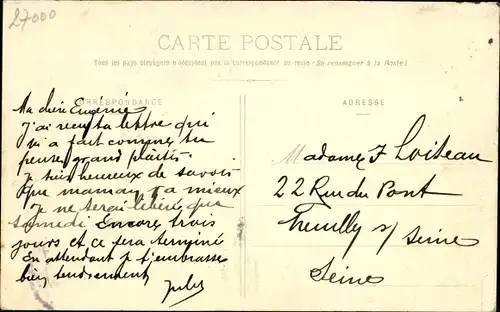 27000
CARTE POSTALE
Tous les pays étrangers n'acceptent pas la correspondance au recto (Se renseigner à la Poste)
CORRESPONDANCE
Ma chère Eugénie
J'ai reçu ta lettre qui
m'a fait comme tu
penses grand plaisir
Je suis heureux de savoir
que maman va mieux
Je ne serai libéré que
samedi Encore trois
jours et ce sera terminé
En attendant je t'embrasse
bien tendrement
Jules
ADRESSE
Madame J Loiseau
22 Rue du Pont
Neuilly s/ Seine
Seine